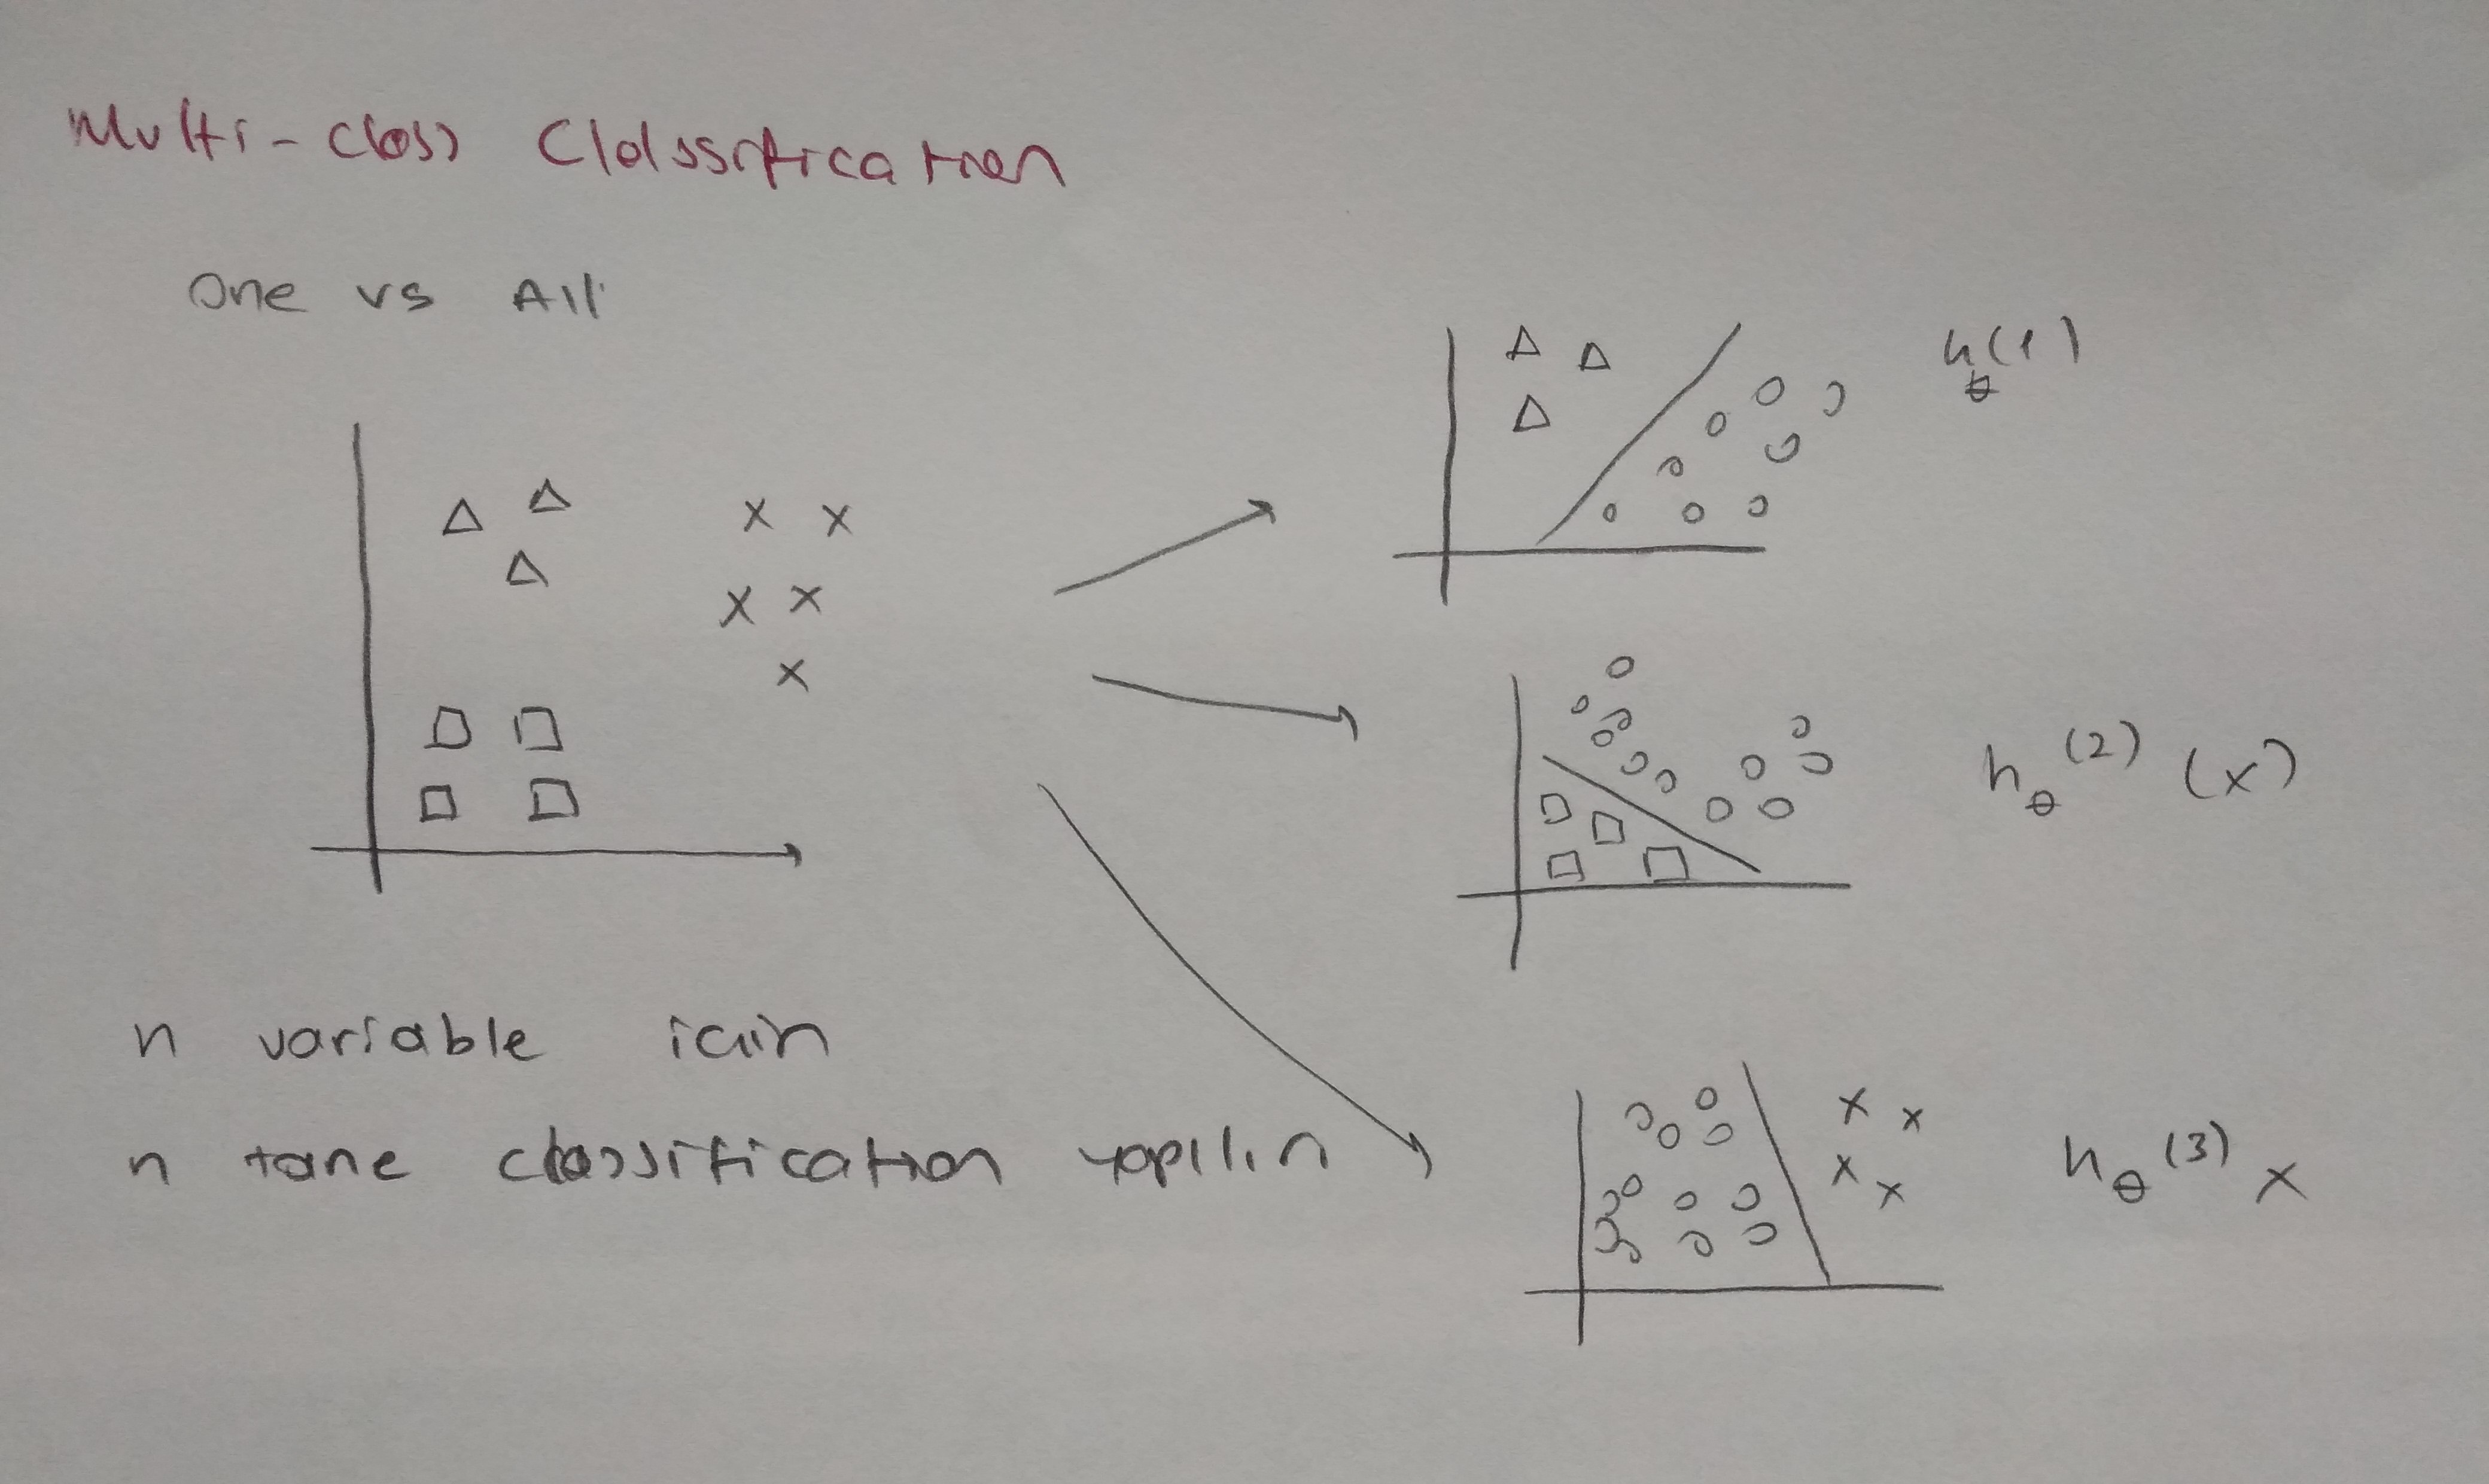 Multi-class Classification
One vs All
h_θ(1)
h_θ^(2) (x)
n variable için
n tane classification yapılın
h_θ^(3) x